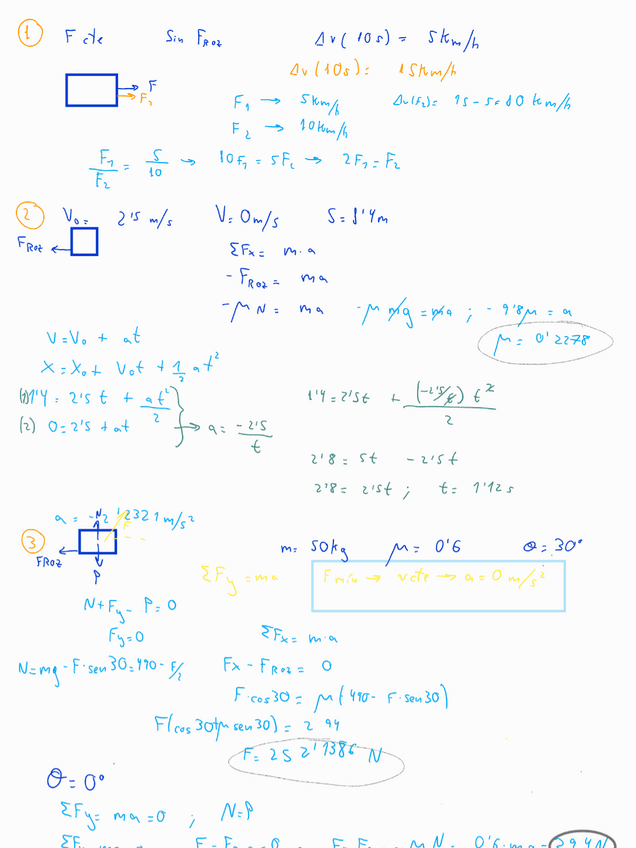 1 F cte Sin FRoz Δv(10s) = 5km/h
Δv(10s) = 15km/h
F
F2
F1 → 5km/h Δv(F2) = 15 - 5 = 10 km/h
F2 → 10km/h
F1/F2 = 5/10 → 10F1 = 5F2 → 2F1 = F2
2 V0 = 2'5 m/s V = 0m/s S = 1'4m
FRoz
ΣFx = m·a
- FRoz = ma
- μN = ma - μmg = ma ; - 9'8μ = a
μ = 0'2278
V = V0 + at
X = X0 + V0t + 1/2 at²
(1) 1'4 = 2'5 t + at²/2
(2) 0 = 2'5 + at → a = -2'5/t
1'4 = 2'5t + (-2'5/t) t²/2
2'8 = 5t - 2'5t
2'8 = 2'5t ; t = 1'12 s
a = -2'2321 m/s²
3 N F m = 50kg μ = 0'6 θ = 30°
FRoz
P
ΣFy = ma Fmin → vcte → a = 0 m/s²
N + Fy - P = 0
Fy = 0 ΣFx = m·a
N = mg - F·sen30 = 490 - F/2 Fx - FRoz = 0
F·cos30 = μ(490 - F·sen30)
F(cos30+μsen30) = 294
F = 252'1386 N
θ = 0°
ΣFy = ma = 0 ; N = P